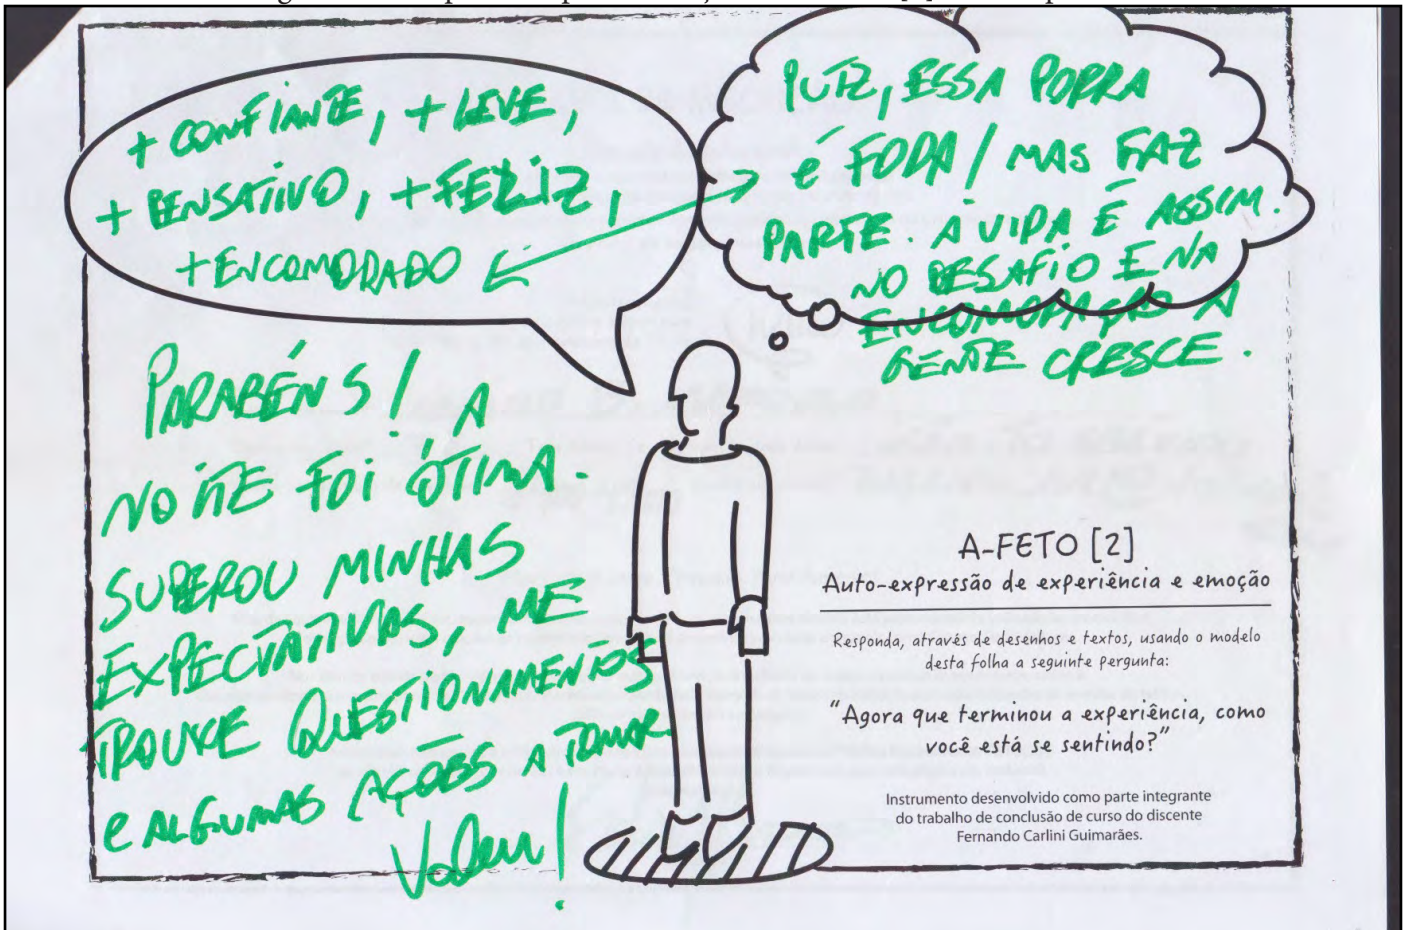 + CONFIANTE, + LEVE,
+ PENSATIVO, + FELIZ,
+ ENCOMODADO
PUTZ, ESSA PORRA
É FODA! MAS FAZ
PARTE. A VIDA É ASSIM.
NO DESAFIO E NA
ENCOMODAÇÃO A
GENTE CRESCE.
PARABÉNS! A
NOITE FOI ÓTIMA.
SUPEROU MINHAS
EXPECTATIVAS, ME
TROUXE QUESTIONAMENTOS
E ALGUMAS AÇÕES A TOMAR
Valeu!
A-FETO [2]
Auto-expressão de experiência e emoção
Responda, através de desenhos e textos, usando o modelo
desta folha a seguinte pergunta:
"Agora que terminou a experiência, como
você está se sentindo?"
Instrumento desenvolvido como parte integrante
do trabalho de conclusão de curso do discente
Fernando Carlini Guimarães.